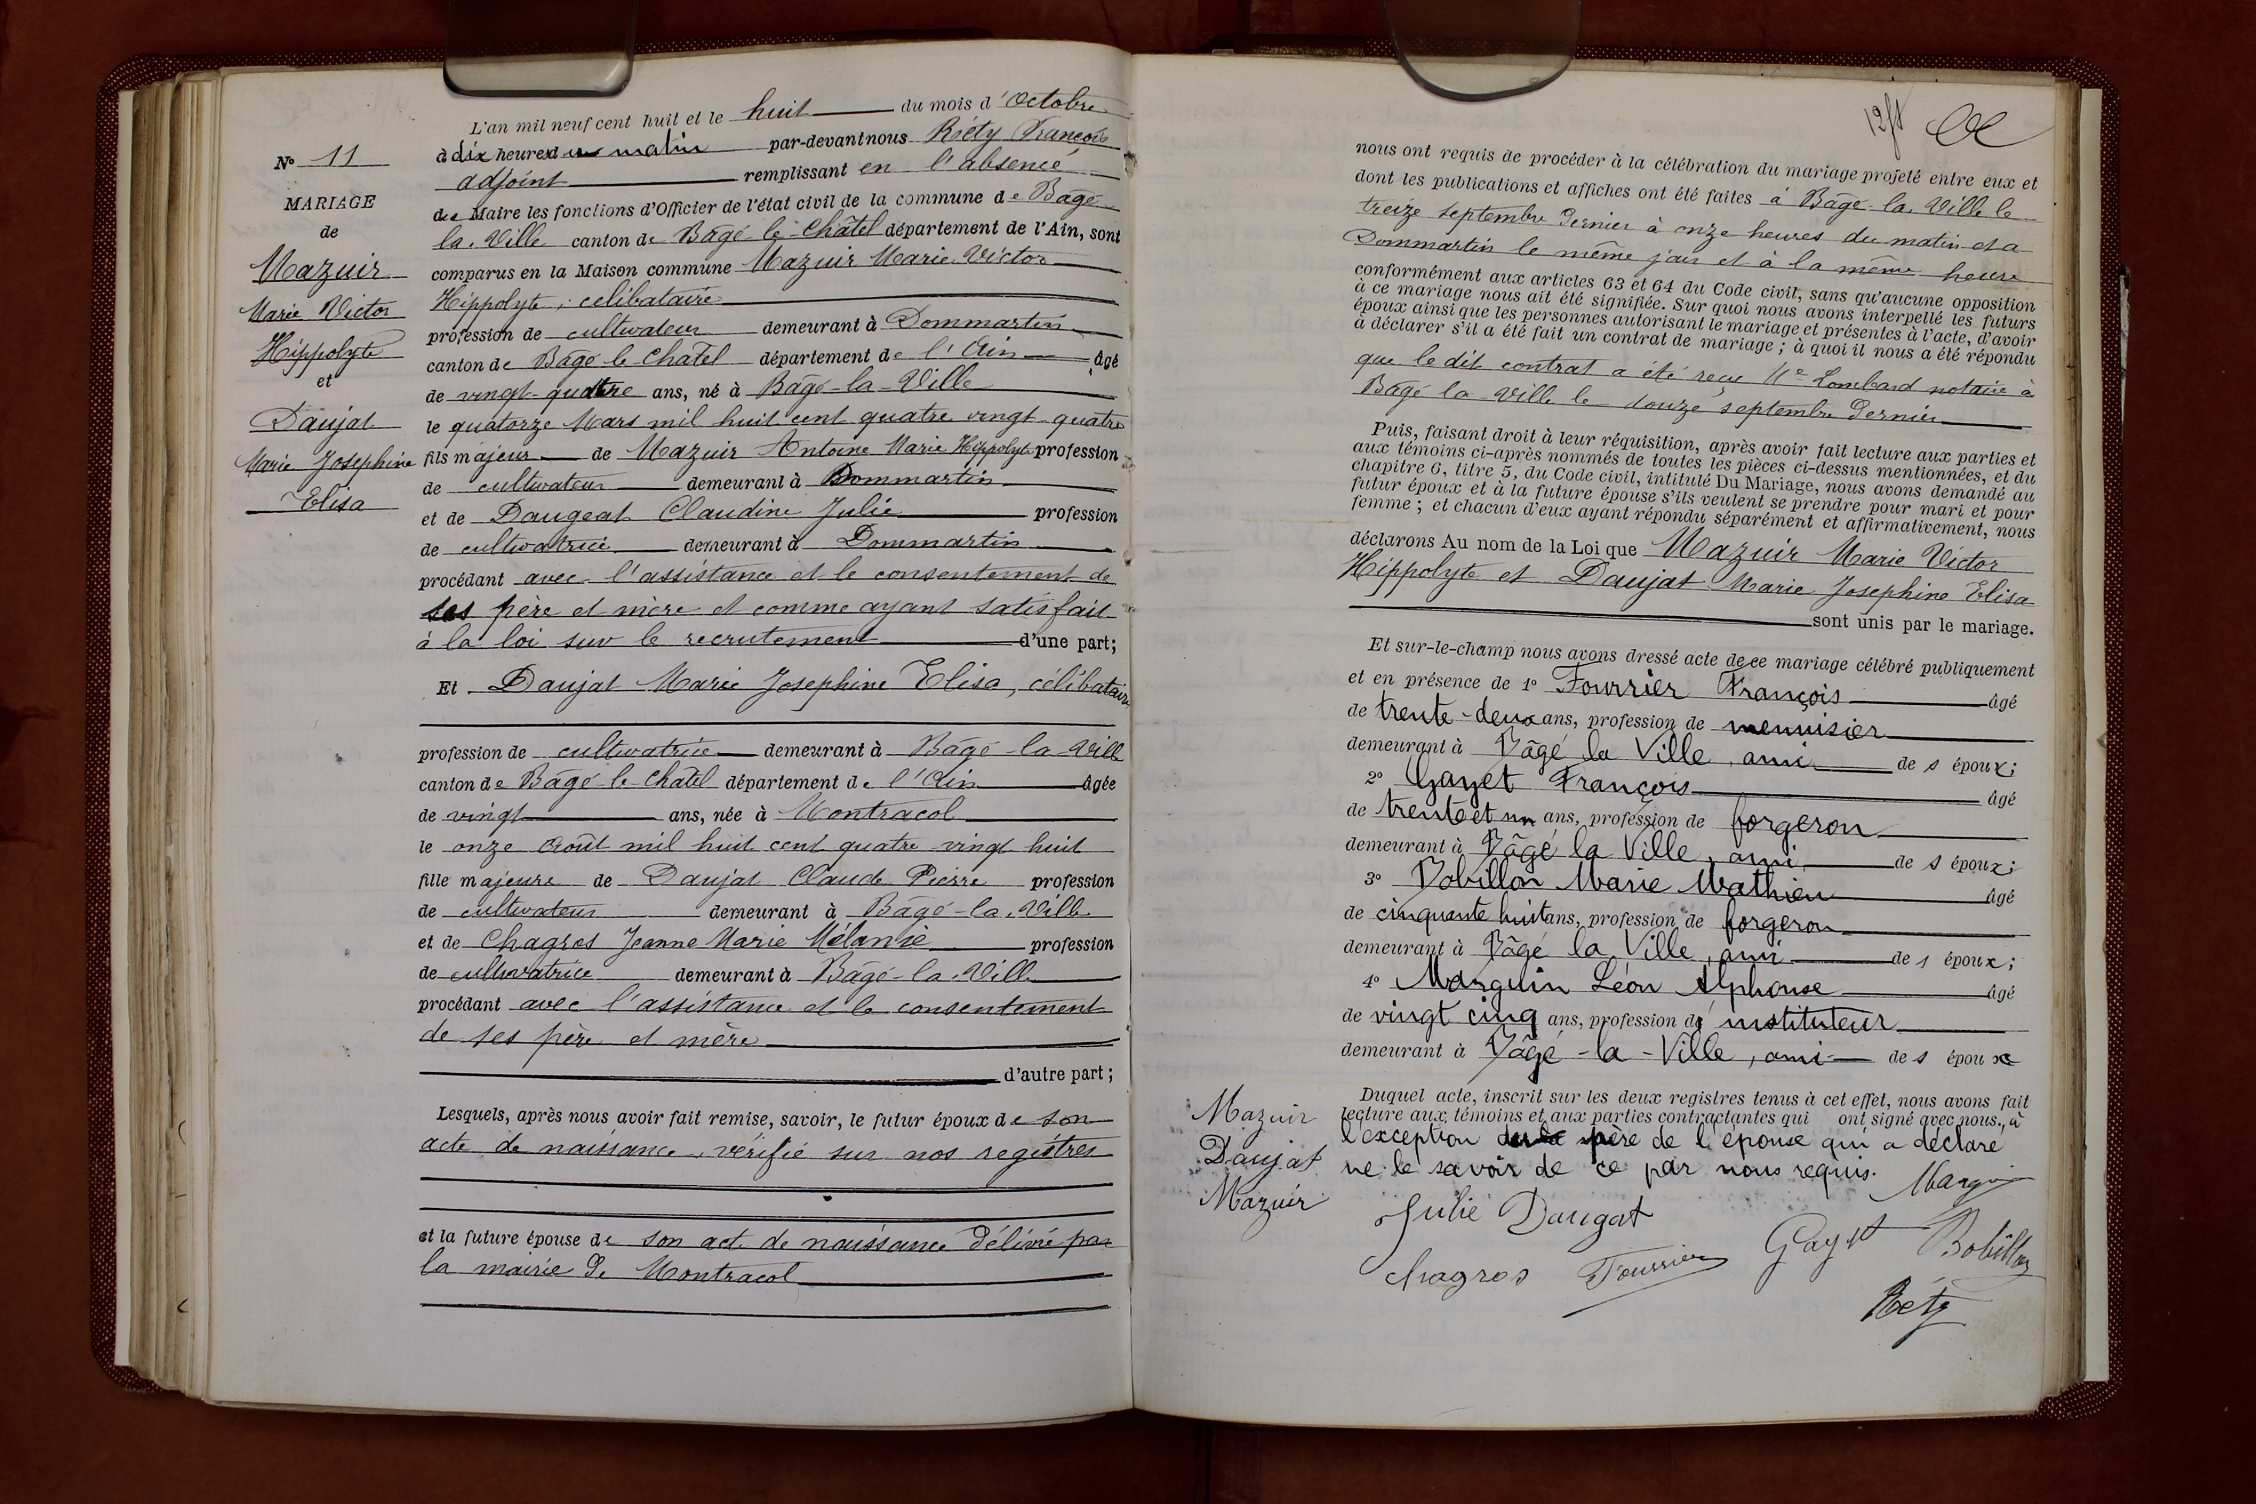 L'an mil neuf cent huit et le huit du mois d'Octobre
à dix heures du matin par-devant nous Réty François
adjoint remplissant en l'absence
du Maire les fonctions d'Officier de l'état civil de la commune de Bâgé
la Ville canton de Bâgé-le-Châtel département de l'Ain, sont
comparus en la Maison commune Mazuir Marie Victor
Hippolyte, célibataire
profession de cultivateur demeurant à Dommartin
canton de Bâgé le Châtel département de l'Ain âgé
de vingt-quatre ans, né à Bâgé-la-Ville
le quatorze Mars mil huit cent quatre vingt-quatre
fils majeur de Mazuir Antoine Marie Hippolyte profession
de cultivateur demeurant à Dommartin
et de Daugeat Claudine Julie profession
de cultivatrice demeurant à Dommartin
procédant avec l'assistance et le consentement de
ses père et mère et comme ayant satisfait
à la loi sur le recrutement d'une part;
Et Daujat Marie Josephine Elisa, célibataire
profession de cultivatrice demeurant à Bâgé-la-Ville
canton de Bâgé-le-Châtel département de l'Ain âgée
de vingt ans, née à Montracol
le onze Août mil huit cent quatre vingt huit
fille majeure de Daujat Claude Pierre profession
de cultivateur demeurant à Bâgé-la-Ville
et de Chagros Jeanne Marie Mélanie profession
de cultivatrice demeurant à Bâgé-la-Ville
procédant avec l'assistance et le consentement
de ses père et mère
d'autre part;
Lesquels, après nous avoir fait remise, savoir, le futur époux de son
acte de naissance, vérifié sur nos registres
et la future épouse de son acte de naissance délivré par
la mairie de Montracol
N° 11
MARIAGE
de
Mazuir
Marie Victor
Hippolyte
et
Daujat
Marie Josephine
Elisa
nous ont requis de procéder à la célébration du mariage projeté entre eux et
dont les publications et affiches ont été faites à Bâgé-la-Ville le
treize septembre dernier à onze heures du matin et à
Dommartin le même jour et à la même heure
conformément aux articles 63 et 64 du Code civil, sans qu'aucune opposition
à ce mariage nous ait été signifiée. Sur quoi nous avons interpellé les futurs
époux ainsi que les personnes autorisant le mariage et présentes à l'acte, d'avoir
à déclarer s'il a été fait un contrat de mariage; à quoi il nous a été répondu
que le dit contrat a été reçu Me Lombard notaire à
Bâgé la-Ville le douze septembre dernier
Puis, faisant droit à leur réquisition, après avoir fait lecture aux parties et
aux témoins ci-après nommés de toutes les pièces ci-dessus mentionnées, et du
chapitre 6, titre 5, du Code civil, intitulé Du Mariage, nous avons demandé au
futur époux et à la future épouse s'ils veulent se prendre pour mari et pour
femme; et chacun d'eux ayant répondu séparément et affirmativement, nous
déclarons Au nom de la Loi que Mazuir Marie Victor
Hippolyte et Daujat Marie Josephine Elisa
sont unis par le mariage.
Et sur-le-champ nous avons dressé acte de ce mariage célébré publiquement
et en présence de 1° Fourrier François âgé
de trente-deux ans, profession de menuisier
demeurant à Bâgé la Ville, ami de s époux;
2° Gayet François âgé
de trente et un ans, profession de forgeron
demeurant à Bâgé la Ville, ami de s époux;
3° Bobillon Marie Mathieu âgé
de cinquante huit ans, profession de forgeron
demeurant à Bâgé la Ville, ami de s époux;
4° Marguin Léon Alphonse âgé
de vingt cinq ans, profession d' instituteur
demeurant à Bâgé-la-Ville, ami de s époux
Duquel acte, inscrit sur les deux registres tenus à cet effet, nous avons fait
lecture aux témoins et aux parties contractantes qui ont signé avec nous, à
l'exception du père de l'épouse qui a déclaré
ne le savoir de ce par nous requis.
Mazuir
Daujat
Mazuir
Julie Daugat
Chagros
Fourrier
Gayet
Bobillon
Réty